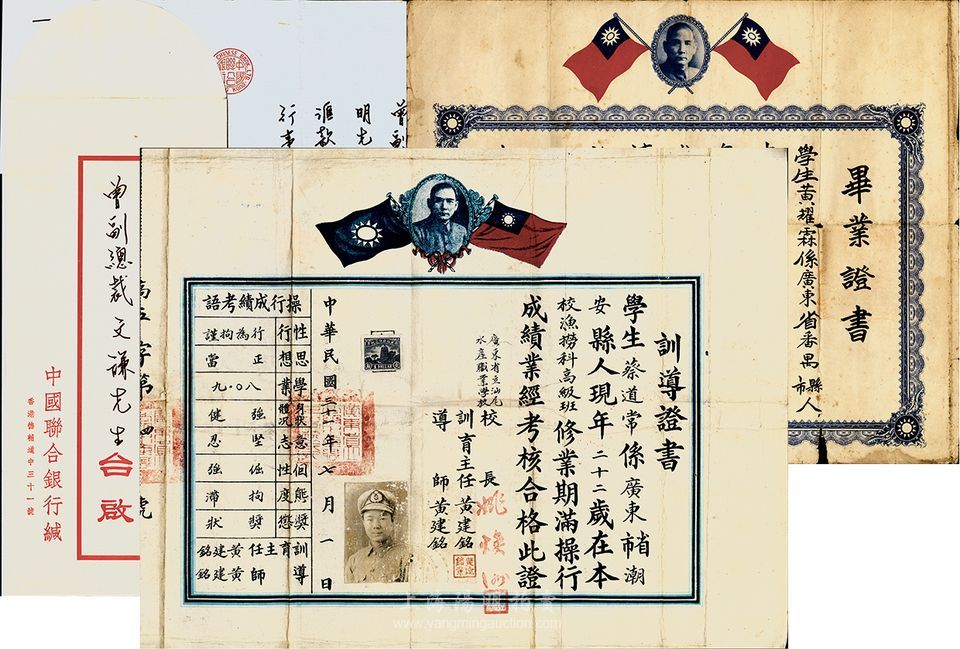 訓導證書
學生蔡道常係廣東省市潮
安縣人現年二十二歲在本
校漁撈科高級班修業期滿操行
成績業經考核合格此證
廣東省立汕尾
水產職業學校
校長
訓育主任黃建銘
導師黃建銘
中華民國三十一年七月一日
操行成績考語
性行 行為拘謹
思想 正當
學業 八〇·九
身體狀況 強健
意志 堅忍
個性 倔強
態度 拘滯
獎懲 獎狀
訓育主任黃建銘
導師黃建銘
畢業證書
學生黃耀霖係廣東省番禺縣市人
曾副總裁文謙先生台啟
中國聯合銀行緘
香港德輔道中三十一號
曾副
明先
匯款
行事
上海陽明拍賣
www.yangmingauction.com